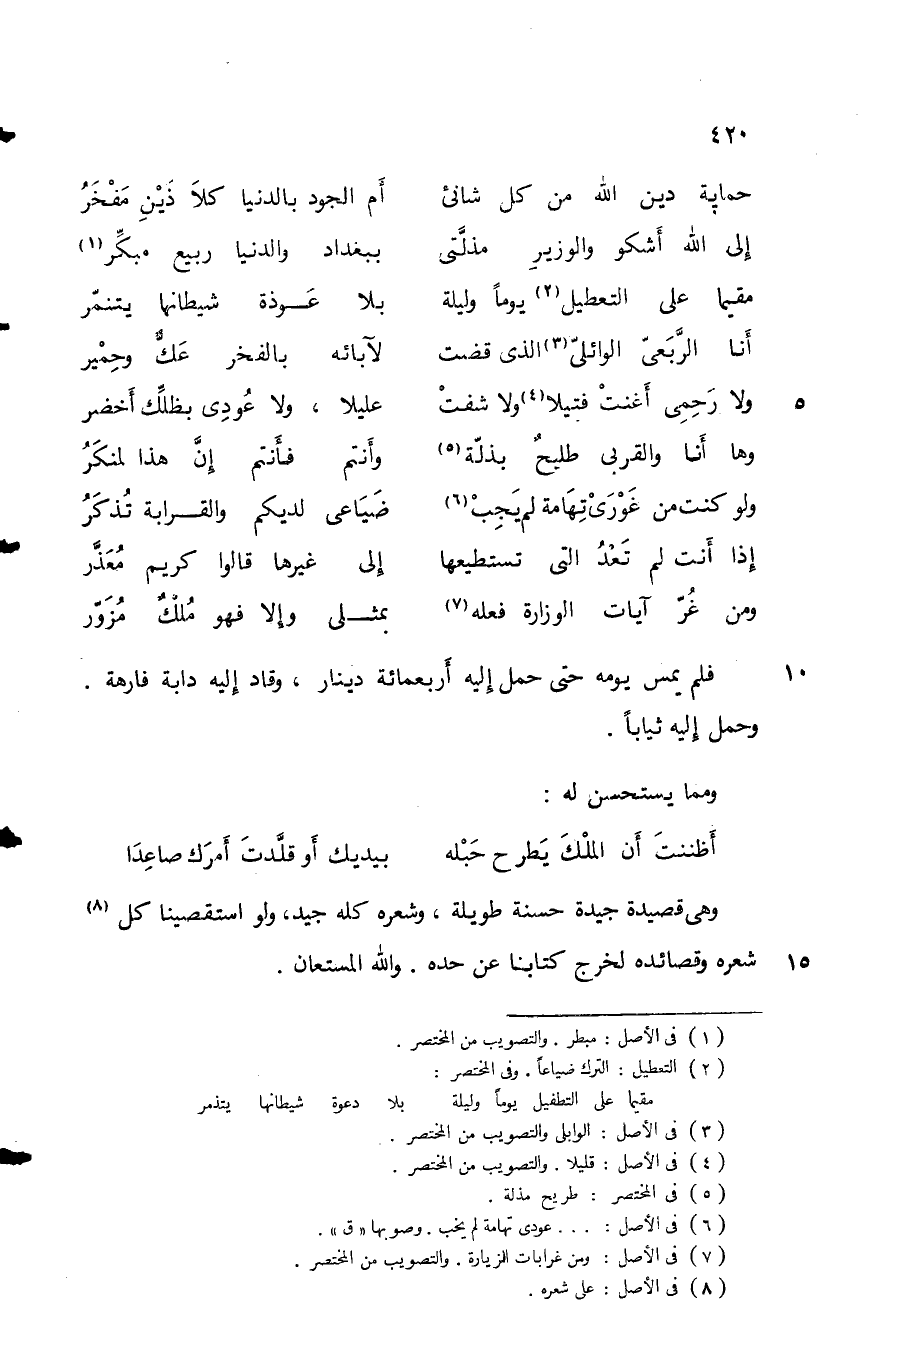 ٤٢٠
حماية دين الله من كل شانئ أم الجود بالدنيا كلاَ ذَيْنِ مَفْخَرُ
إلى الله أشكو والوزيرِ مذلَّتى ببغداد والدنيا ربيع مبكِّر(١)
مقيما على التعطيل(٢) يوماً وليلة بلا عَـــوذة شيطانها يتنمّر
أنا الرَّبَعىّ الوائلىّ(٣) الذى قضت لآبائه بالفخر عَكٌّ وحِمْير
٥ ولا رَحِمِى أغنتْ فتيلا(٤) ولا شفتْ عليلا ، ولا عُودِى بظلِّك أخضر
وها أنا والقربى طليحٌ بذلّة(٥) وأنتم فأنتم إنَّ هذا لمنكَرُ
ولو كنت من غَوْرَىْ تِهَامة لم يَجِبْ(٦) ضَيَاعى لديكم والقـــرابة تُذكَرُ
إذا أنت لم تَعْدُ التى تستطيعها إلى غيرها قالوا كريم مُعَذَّر
ومن غُرّ آيات الوزارة فعله(٧) بمثـــلى وإلا فهو مُلْكٌ مُزَوَّر
١٠ فلم يمس يومه حتى حمل إليه أربعمائة دينار ، وقاد إليه دابة فارهة .
وحمل إليه ثياباً .
ومما يستحسن له :
أظننتَ أن الملْكَ يَطرح حَبْله بيديك أو قلَّدتَ أمرَك صاعِدَا
وهى قصيدة جيدة حسنة طويلة ، وشعره كله جيد، ولو استقصينا كل (٨)
١٥ شعره وقصائده لخرج كتابنا عن حده . والله المستعان .
(١) فى الأصل : مبطر . والتصويب من المختصر .
(٢) التعطيل : الترك ضياعاً . وفى المختصر :
مقيما على التطفيل يوماً وليلة بلا دعوة شيطانها يتذمر
(٣) فى الأصل : الوابلى والتصويب من المختصر .
(٤) فى الأصل : قليلا . والتصويب من المختصر .
(٥) فى المختصر : طريح مذلة .
(٦) فى الأصل : . . . عودى تهامة لم يخب . وصوبها « ق » .
(٧) فى الأصل : ومن غرابات الزيارة . والتصويب من المختصر .
(٨) فى الأصل : على شعره .